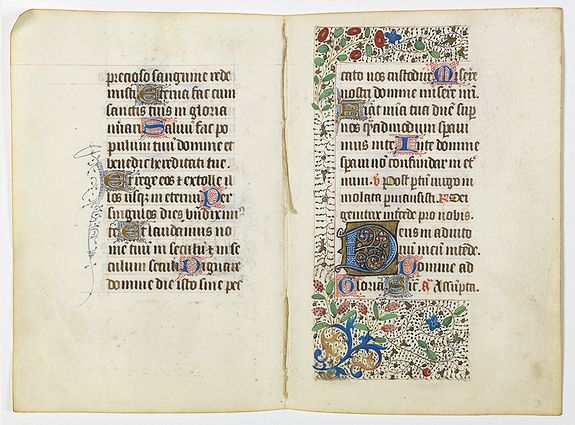 precioso sanguine rede
misti Eterna fac cum
sanctis tuis in gloria
nũari Saluũ fac po
pulum tuũ domine et
benedic hereditati tue.
Et rege eos ⁊ extolle il
los usq; in eternũ Per
singulos dies bñdixim⁹
te Et laudamus no
me tuũ in seculũ ⁊ in se
culum seculi Dignare
domine die isto sine pec
cato nos custodire Misere
nostri domine misere nr̃i.
Fiat mĩa tua dñe sup
nos q̃madmodum speraui
mus in te In te domine
speraui nõ confundar in et̾
num. v̾ Post ptũ uirgo in
uiolata pmansisti. R̾ Dei
genitrix intede pro nobis.
Deus in adiuto
riũ meũ intẽde.
Domine ad
Gloria Sic. a Assũpta.